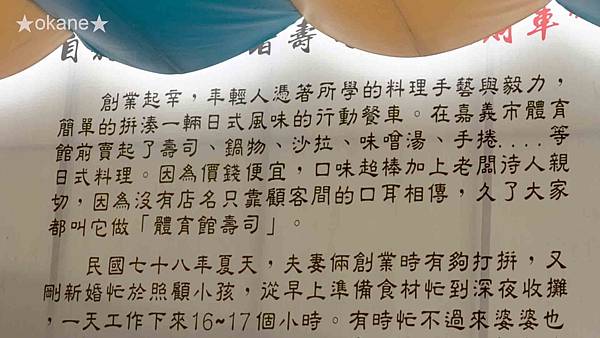 ★okane★
壽 車
創業起幸,年輕人憑著所學的料理手藝與毅力,
簡單的拼湊一輛日式風味的行動餐車。在嘉義市體育
館前賣起了壽司、鍋物、沙拉、味噌湯、手捲....等
日式料理。因為價錢便宜,口味超棒加上老闆待人親
切,因為沒有店名只靠顧客間的口耳相傳,久了大家
都叫它做「體育館壽司」。
民國七十八年夏天,夫妻倆創業時有夠打拼,又
剛新婚忙於照顧小孩,從早上準備食材忙到深夜收攤
,一天工作下來16~17個小時。有時忙不過來婆婆也